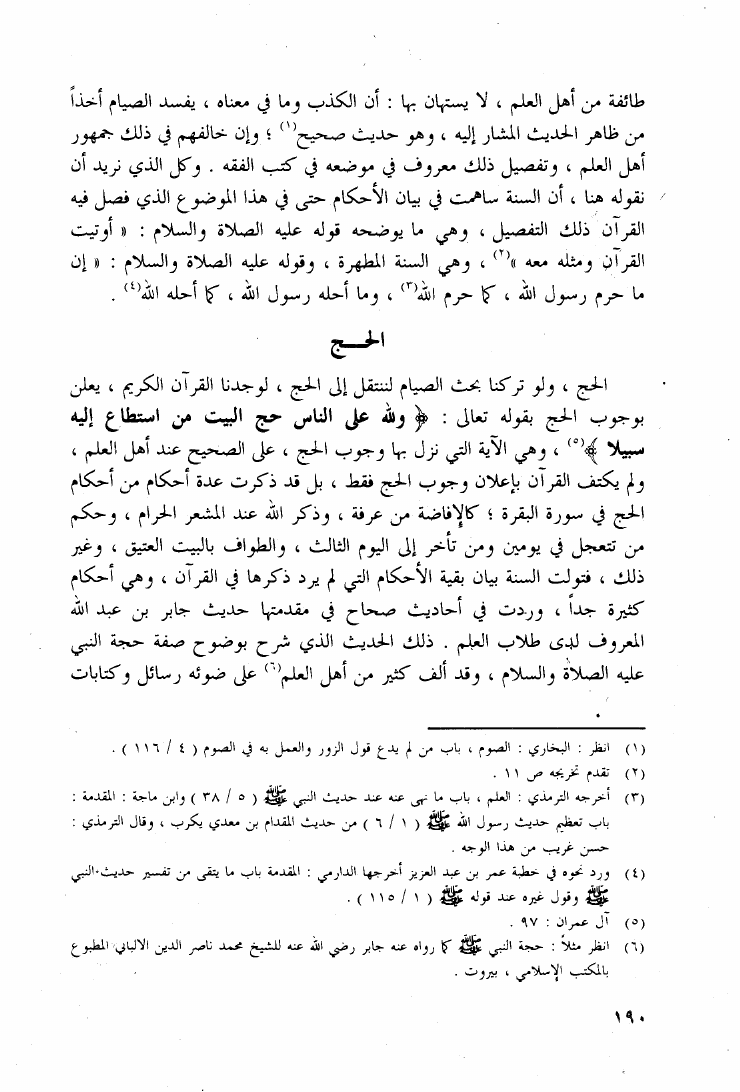 طائفة من أهل العلم ، لا يستهان بها : أن الكذب وما في معناه ، يفسد الصيام أخذاً
من ظاهر الحديث المشار إليه ، وهو حديث صحيح(١) ؛ وإن خالفهم في ذلك جمهور
أهل العلم ، وتفصيل ذلك معروف في موضعه في كتب الفقه . وكل الذي نريد أن
نقوله هنا ، أن السنة ساهمت في بيان الأحكام حتى في هذا الموضوع الذي فصل فيه
القرآن ذلك التفصيل ، وهي ما يوضحه قوله عليه الصلاة والسلام : « أوتيت
القرآن ومثله معه »(٢) ، وهي السنة المطهرة ، وقوله عليه الصلاة والسلام : « إن
ما حرم رسول الله ، كما حرم الله(٣) ، وما أحله رسول الله ، كما أحله الله(٤) .
الحــج
الحج ، ولو تركنا بحث الصيام لننتقل إلى الحج ، لوجدنا القرآن الكريم ، يعلن
بوجوب الحج بقوله تعالى : ﴿ ولله على الناس حج البيت من استطاع إليه
سبيلا ﴾(٥) ، وهي الآية التي نزل بها وجوب الحج ، على الصحيح عند أهل العلم ،
ولم يكتف القرآن بإعلان وجوب الحج فقط ، بل قد ذكرت عدة أحكام من أحكام
الحج في سورة البقرة ؛ كالإفاضة من عرفة ، وذكر الله عند المشعر الحرام ، وحكم
من تتعجل في يومين ومن تأخر إلى اليوم الثالث ، والطواف بالبيت العتيق ، وغير
ذلك ، فتولت السنة بيان بقية الأحكام التي لم يرد ذكرها في القرآن ، وهي أحكام
كثيرة جداً ، وردت في أحاديث صحاح في مقدمتها حديث جابر بن عبد الله
المعروف لدى طلاب العلم . ذلك الحديث الذي شرح بوضوح صفة حجة النبي
عليه الصلاة والسلام ، وقد ألف كثير من أهل العلم(٦) على ضوئه رسائل وكتابات
(١) انظر : البخاري : الصوم ، باب من لم يدع قول الزور والعمل به في الصوم ( ٤ / ١١٦ ) .
(٢) تقدم تخريجه ص ١١ .
(٣) أخرجه الترمذي : العلم ، باب ما نهى عنه عند حديث النبي ﷺ ( ٥ / ٣٨ ) وابن ماجة : المقدمة :
باب تعظيم حديث رسول الله ﷺ ( ١ / ٦ ) من حديث المقدام بن معدي يكرب ، وقال الترمذي :
حسن غريب من هذا الوجه .
(٤) ورد نحوه في خطبة عمر بن عبد العزيز أخرجها الدارمي : المقدمة باب ما يتقى من تفسير حديث النبي
ﷺ وقول غيره عند قوله ﷺ ( ١ / ١١٥ ) .
(٥) آل عمران : ٩٧ .
(٦) انظر مثلاً : حجة النبي ﷺ كما رواه عنه جابر رضي الله عنه للشيخ محمد ناصر الدين الالباني المطبوع
بالمكتب الإسلامي ، بيروت .
١٩٠